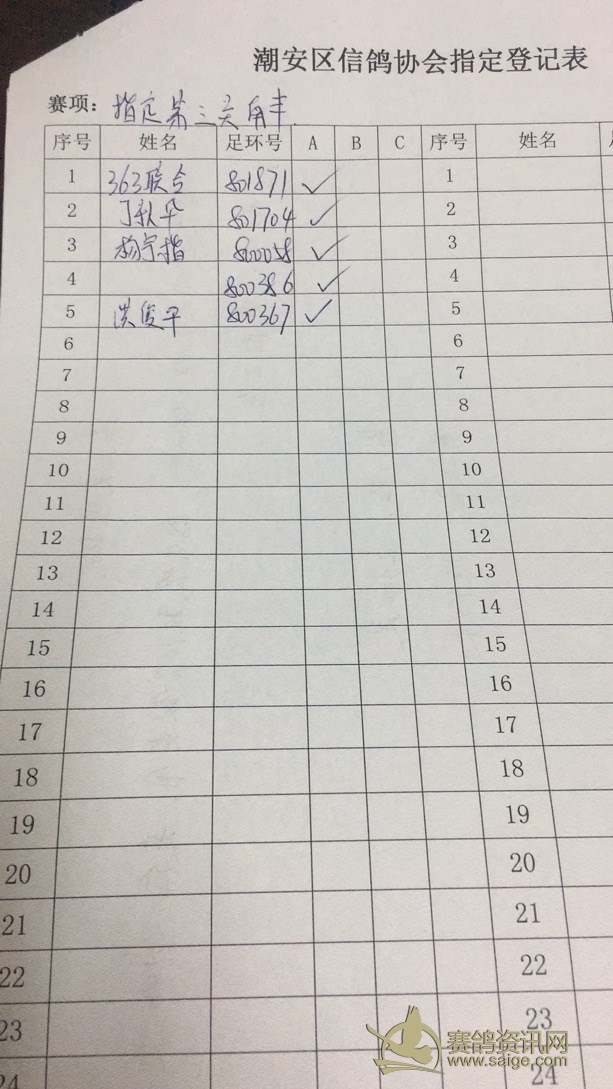 潮安区信鸽协会指定登记表
赛项: 指定第三关 海丰
序号 姓名 足环号 A B C 序号 姓名
1 363联合 801871 ✓ 1
2 丁秋华 801704 ✓ 2
3 杨宗指 800058 ✓ 3
4 800386 ✓ 4
5 洪俊平 800367 ✓ 5
6 6
7 7
8 8
9 9
10 10
11 11
12 12
13 13
14 14
15 15
16 16
17 17
18 18
19 19
20 20
21 21
22 22
23 23
24 24
赛鸽资讯网
www.saige.com